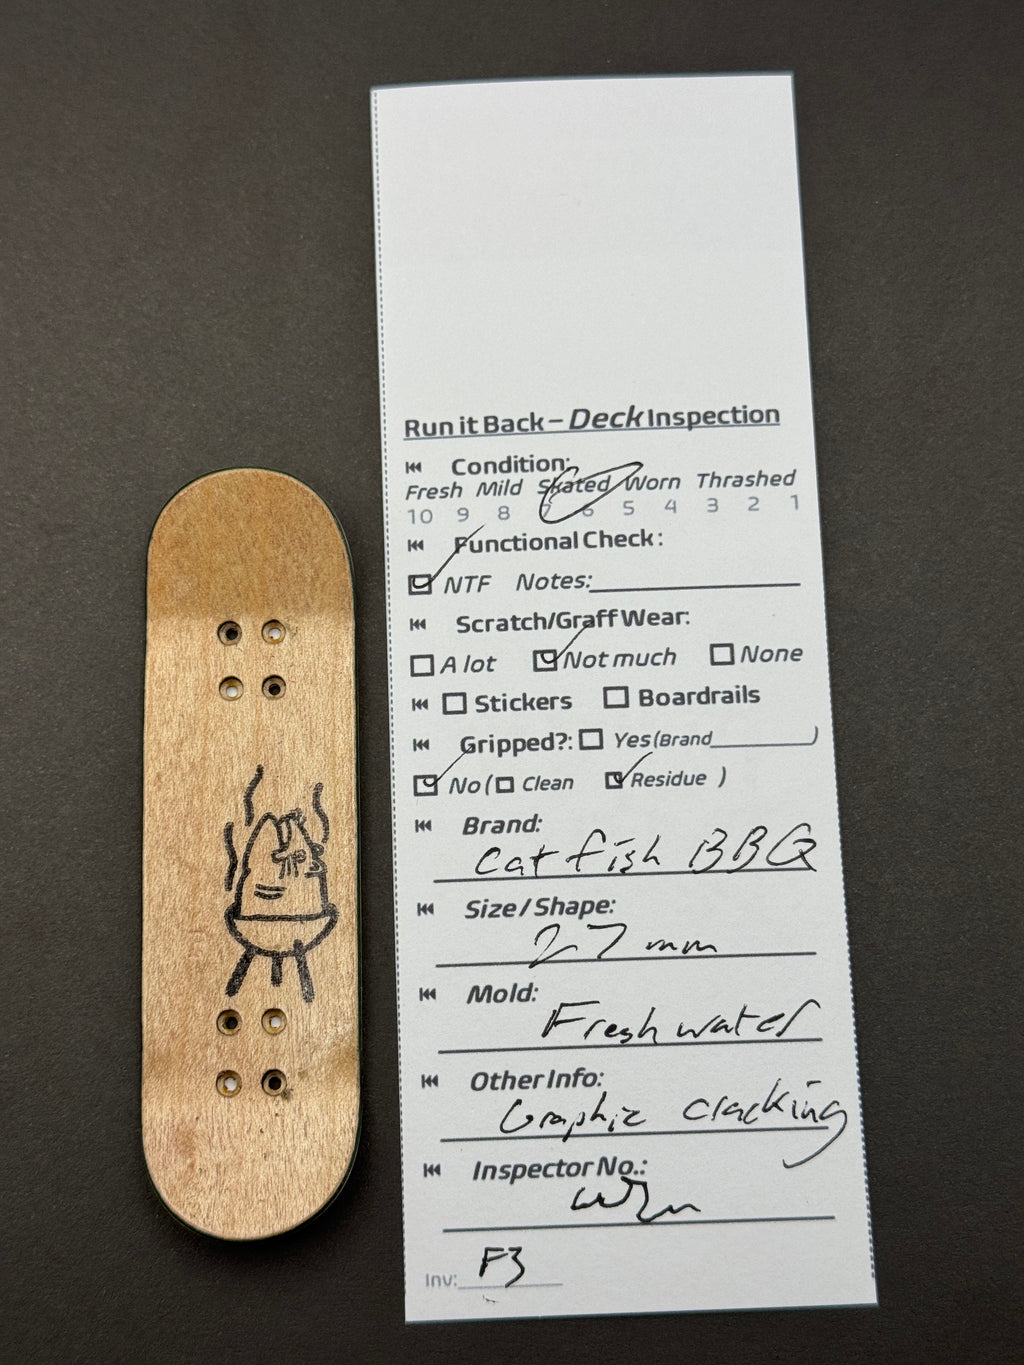 Run it Back – Deck Inspection
Condition:
Fresh Mild Skated Worn Thrashed
10 9 8 7 6 5 4 3 2 1
Functional Check:
NTF Notes:
Scratch/Graff Wear:
A lot Not much None
Stickers Boardrails
Gripped?: Yes (Brand )
No ( Clean Residue )
Brand:
Catfish BBQ
Size / Shape:
27 mm
Mold:
Freshwater
Other Info:
Graphic cracking
Inspector No.:
Inv: F3